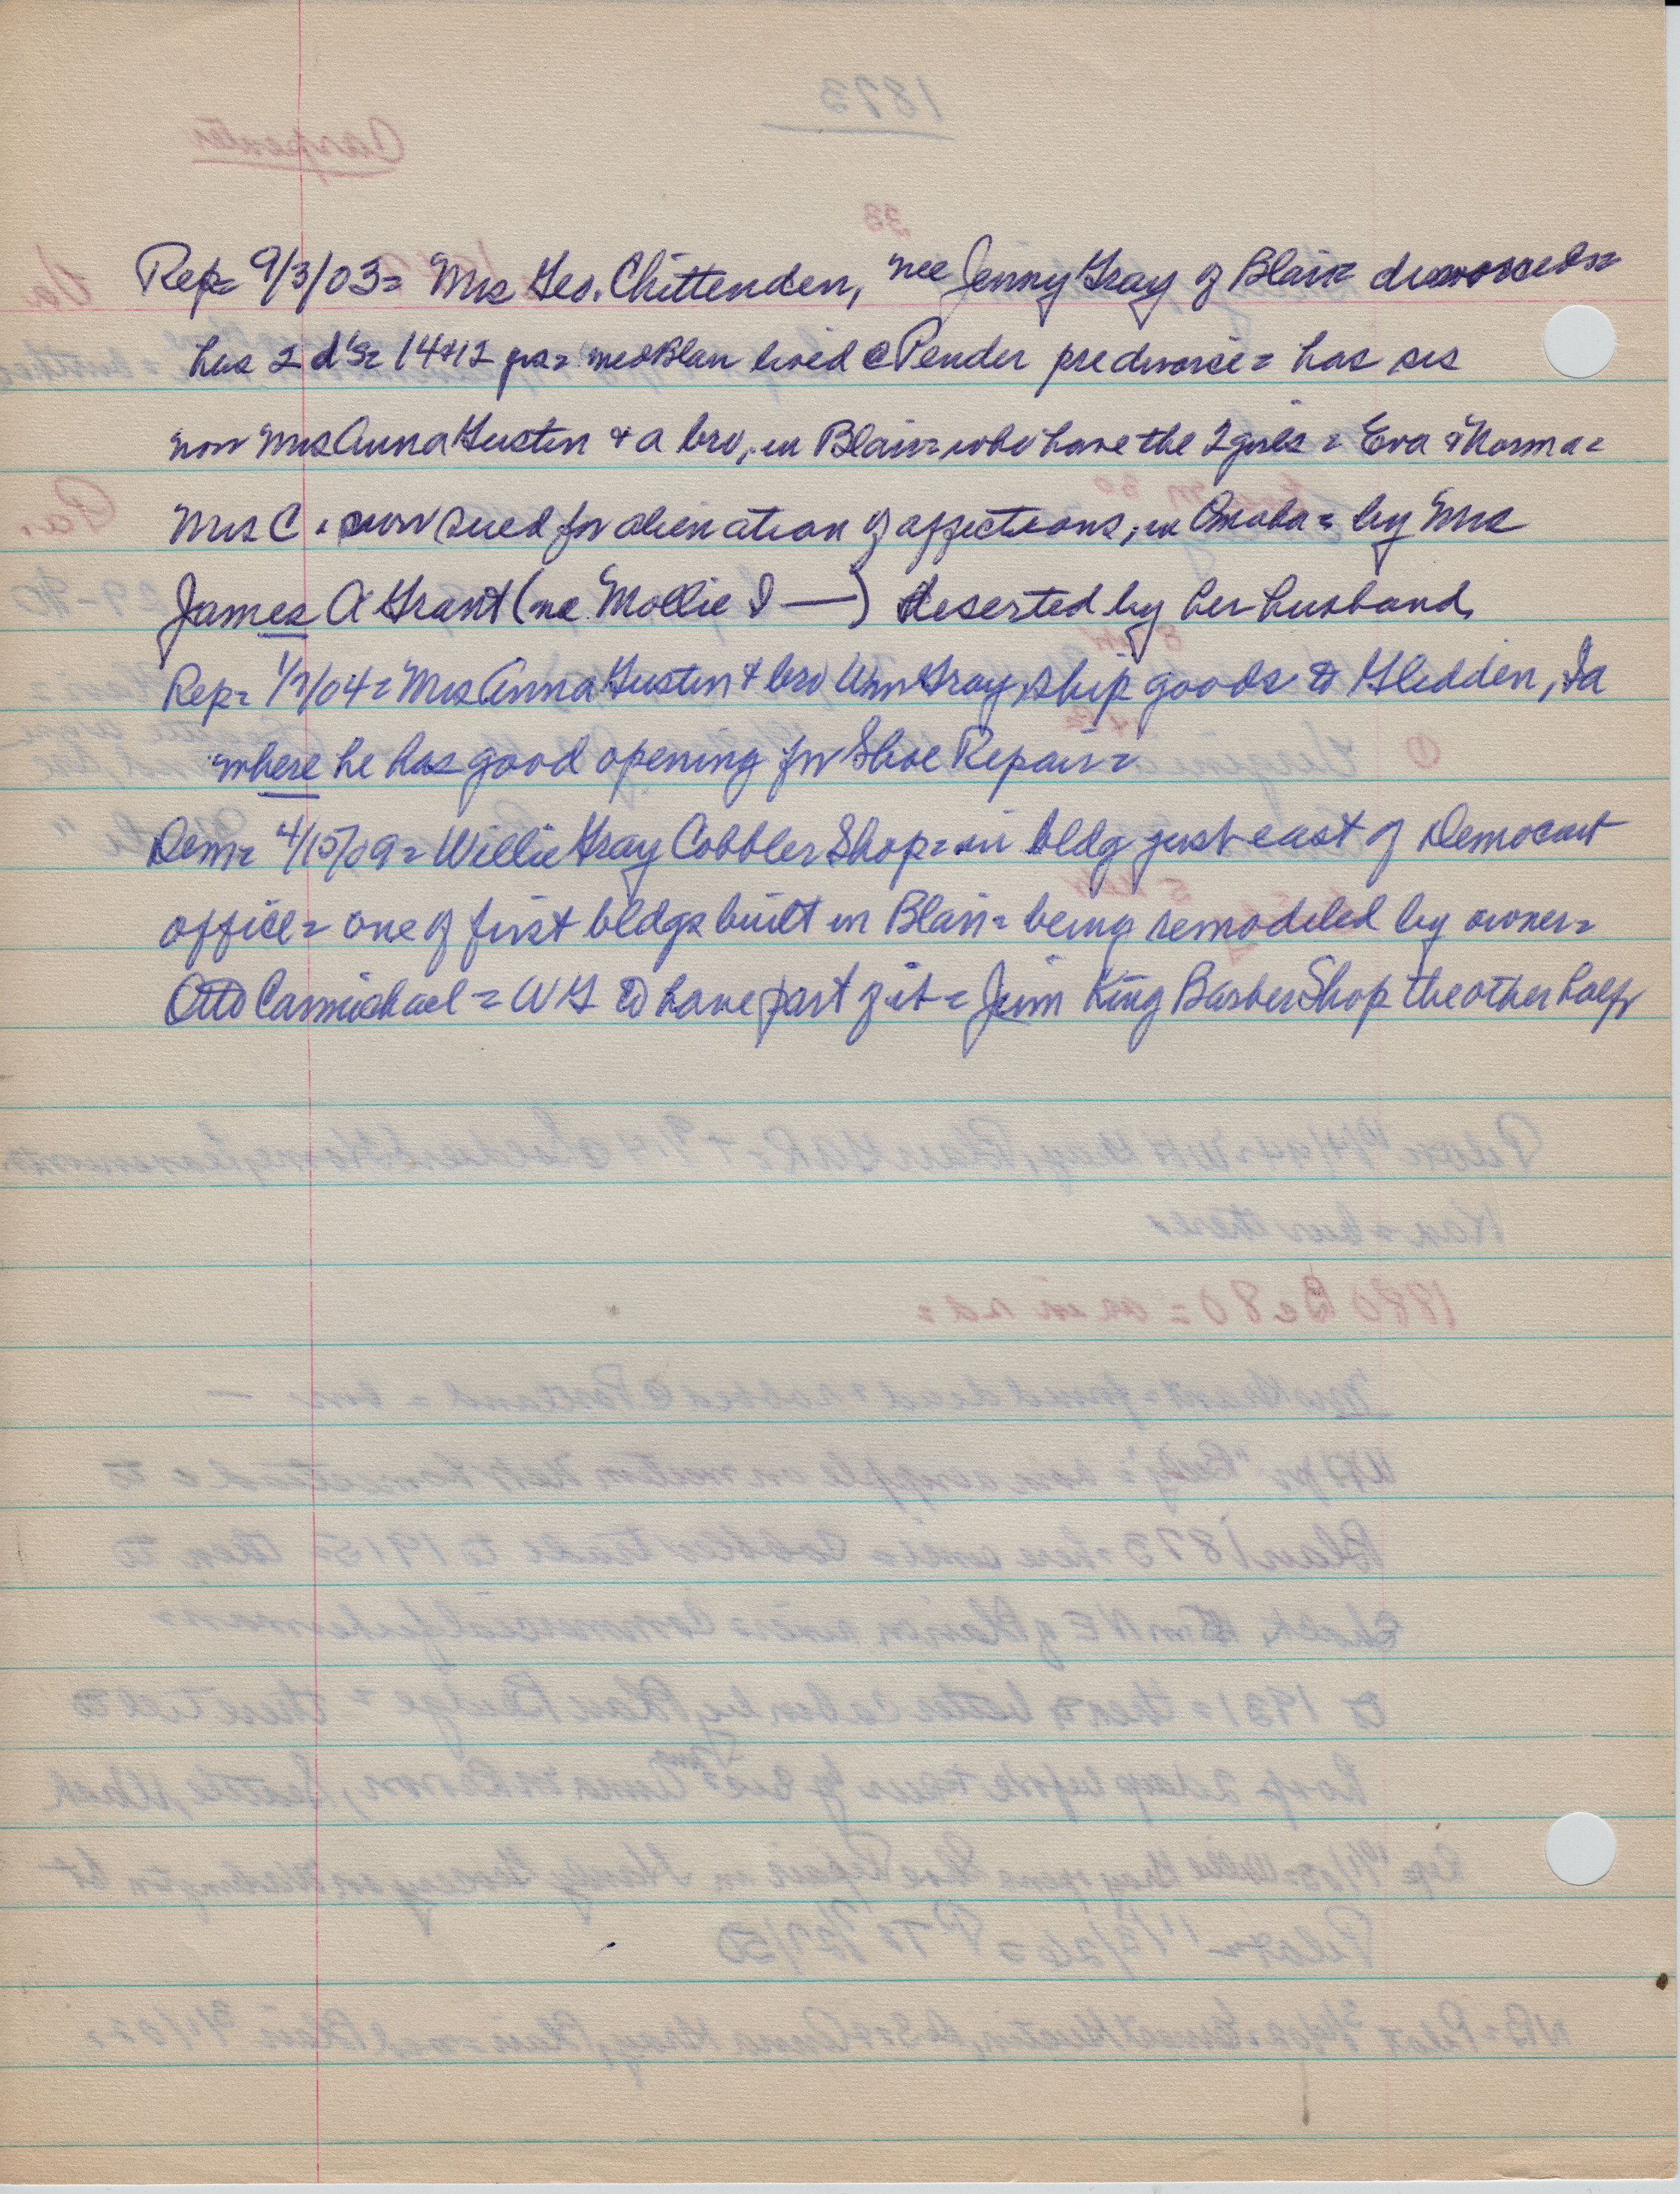 Rep= 9/3/03= Mrs Geo. Chittenden, nee Jenny Gray of Blair= divorced=
has 2 d's= 14+12 yrs= med Blair lived @ Pender predivorce= has sis
now Mrs Anna Gustin + a bro, in Blair= who have the 2 girls= Eva + Norma=
Mrs C. now sued for alienation of affections, in Omaha= by Mrs
James A Grant (ne Mollie I —) deserted by her husband,
Rep= 1/7/04= Mrs Anna Gustin + bro Wm Gray ship goods to Glidden, Ia
where he has good opening for Shoe Repair=
Dem= 4/15/09= Willie Gray Cobbler Shop= in bldg just east of Democrat
office= one of first bldgs built in Blair= being remodeled by owner=
Otto Carmichael= WG to have part of it= Jim King Barber Shop the other half